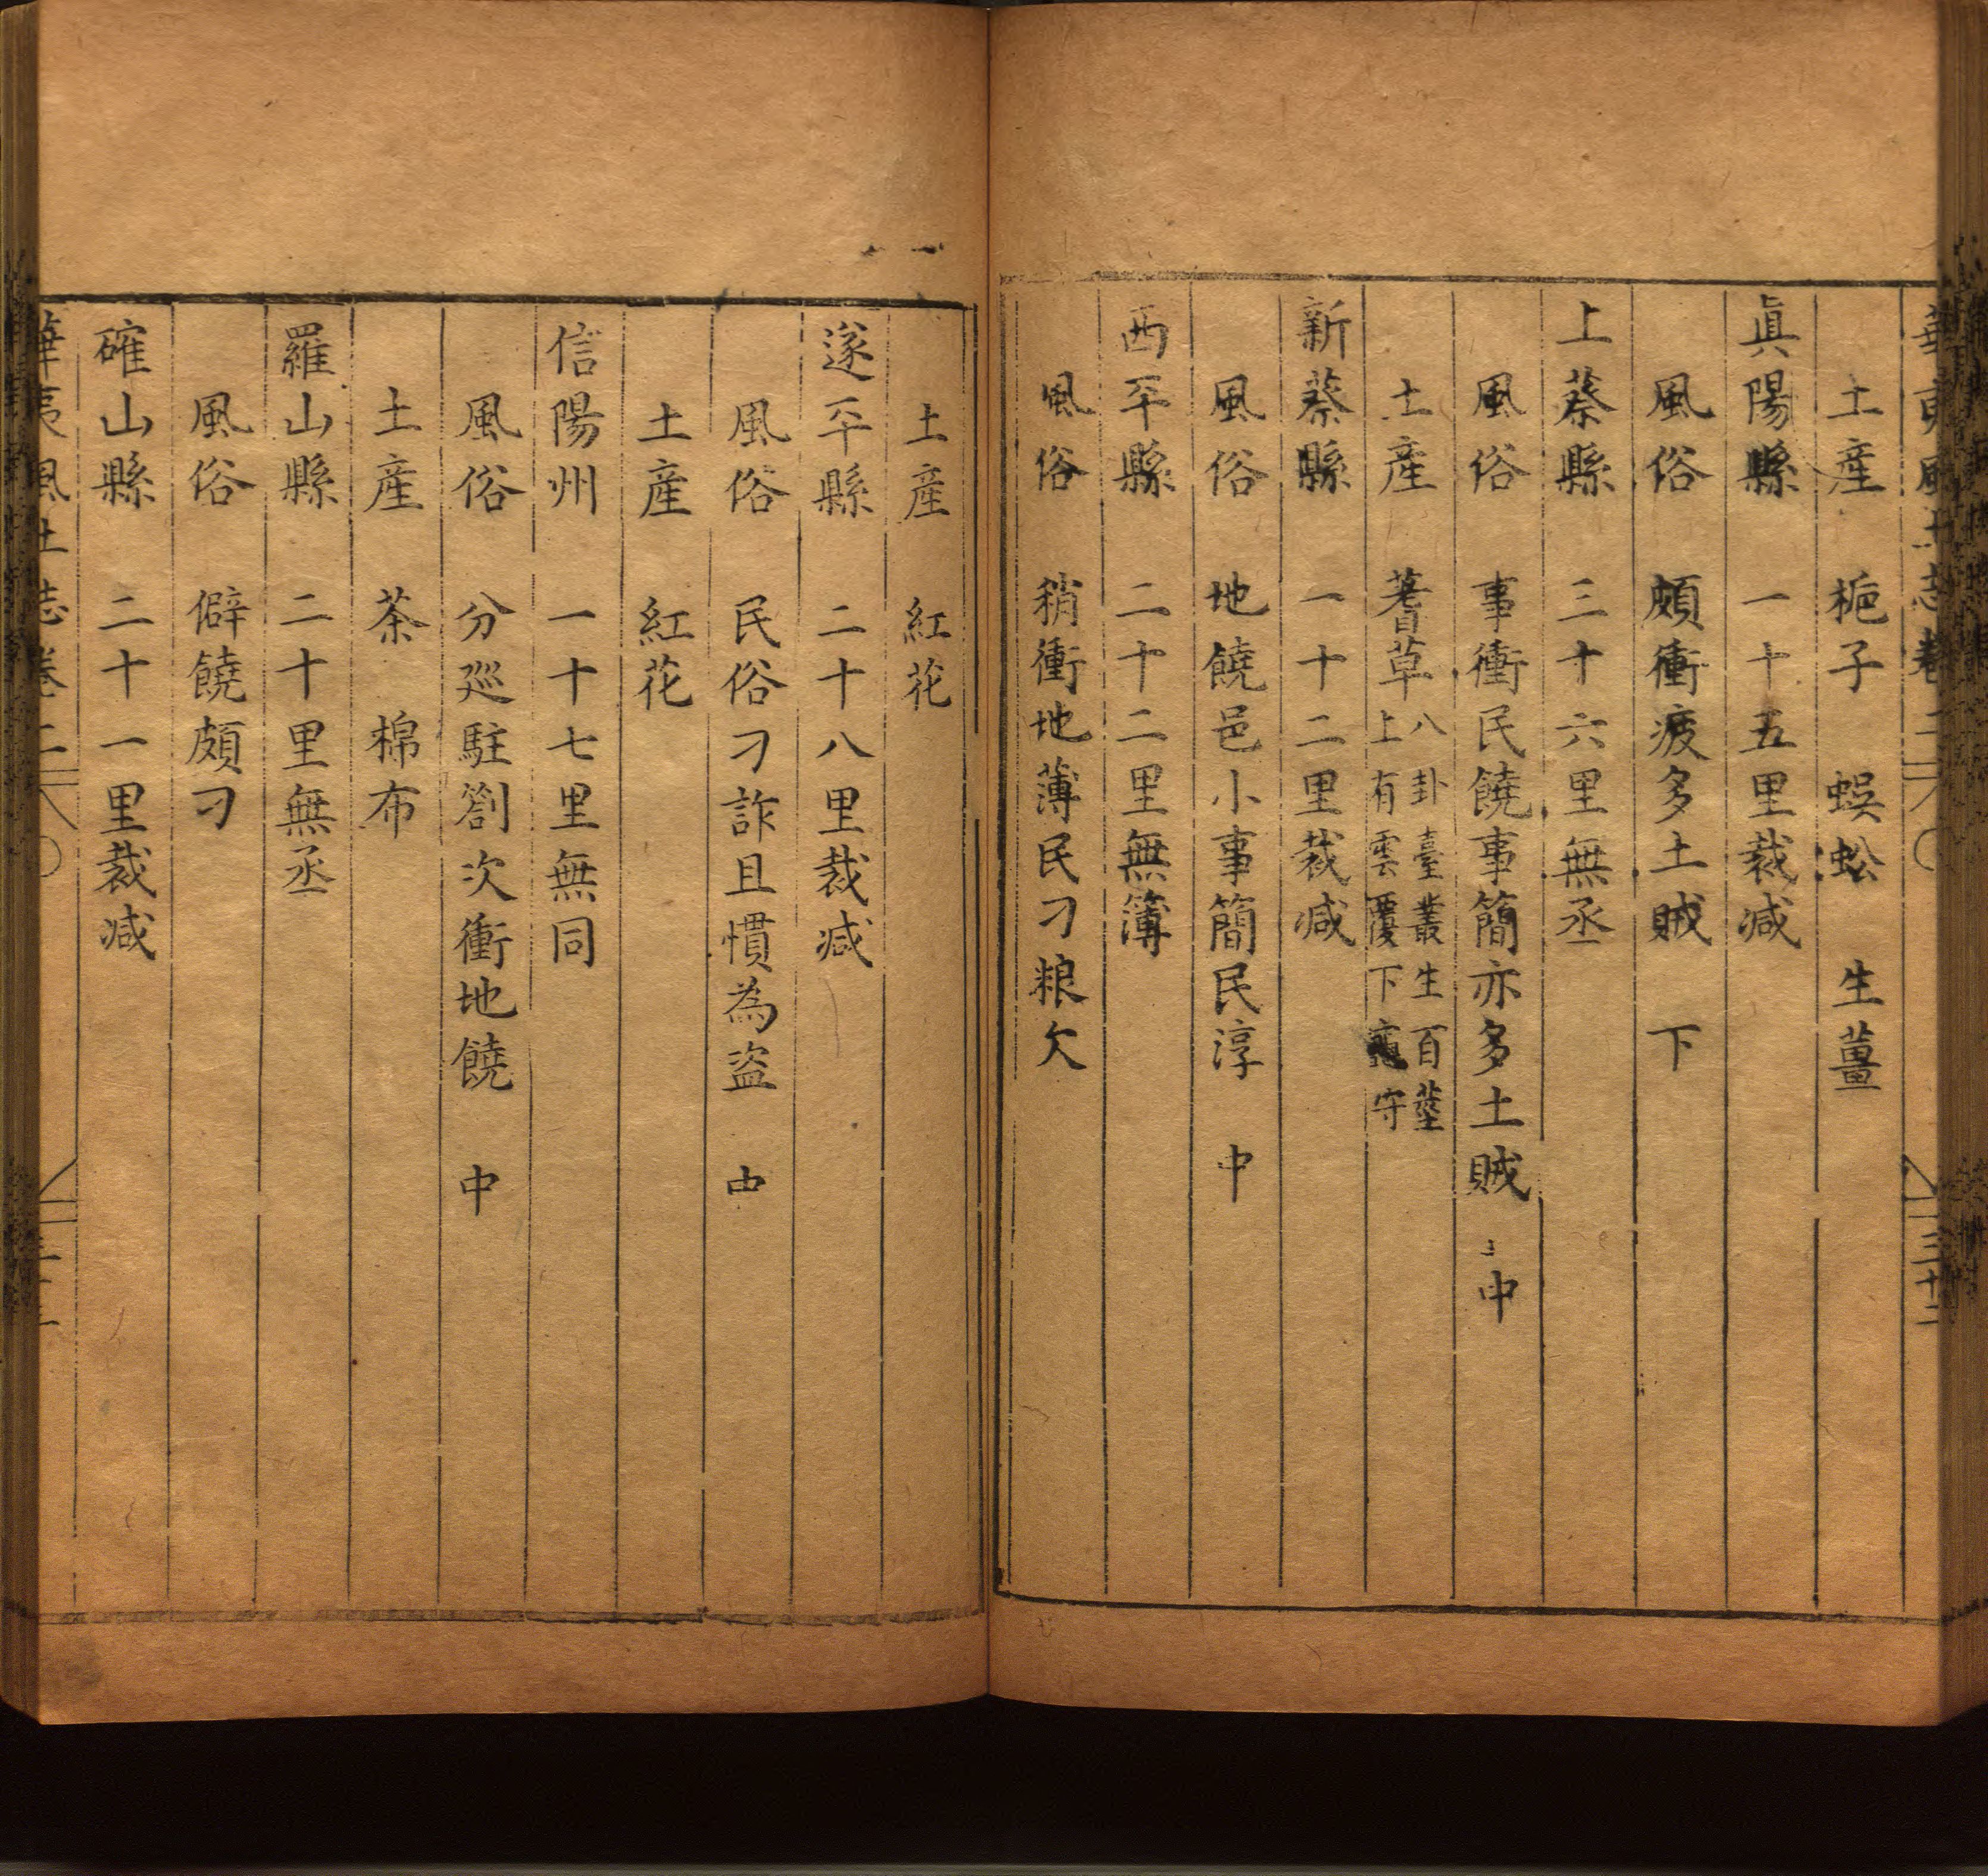 華夷風土志卷二
三十二
土產 梔子 蜈蚣 生薑
眞陽縣 一十五里裁減
風俗 頗衝疲多土賊 下
上蔡縣 三十六里無丞
風俗 事衝民饒事簡亦多土賊 中
土產 蓍草 八卦臺叢生百莖
上有雲覆下 守
新蔡縣 一十二里裁減
風俗 地饒邑小事簡民淳 中
西平縣 二十二里無簿
風俗 稍衝地薄民刁粮欠
土產 紅花
遂平縣 二十八里裁減
風俗 民俗刁詐且慣為盜 中
土產 紅花
信陽州 一十七里無同
風俗 分廵駐劄次衝地饒 中
土產 茶 棉布
羅山縣 二十里無丞
風俗 僻饒頗刁
確山縣 二十一里裁減
華夷風土志卷二